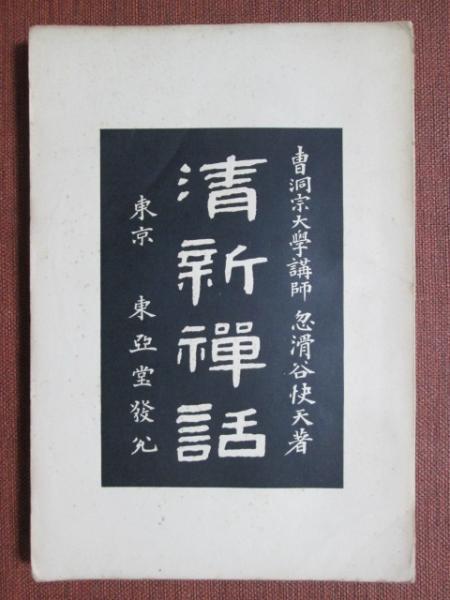 曹洞宗大學講師 忽滑谷快天著
清新禪話
東京 東亞堂發兌